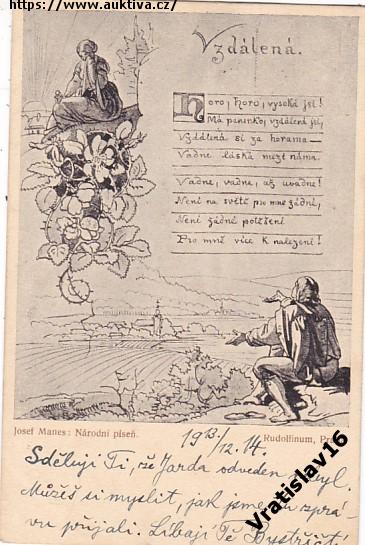 https://www.auktiva.cz/
Vzdálená.
Horo, horo, vysoká jsi!
Má panenko, vzdálená jsi,
Vzdálená si za horama—
Vadne láska mezi náma.
Vadne, vadne, až uvadne!
Není na světě pro mne žádné,
Není žádné potěšení
Pro mně více k nalezení!
Josef Manes: Národní píseň.
Rudolfinum, Pr
19 13/12. 14.
Sděluji Ti, že Jarda odveden nebyl.
Můžeš si myslit, jak jsme tu zprá-
vu přijali. Líbají Tě Bystřičtí
Vratislav16